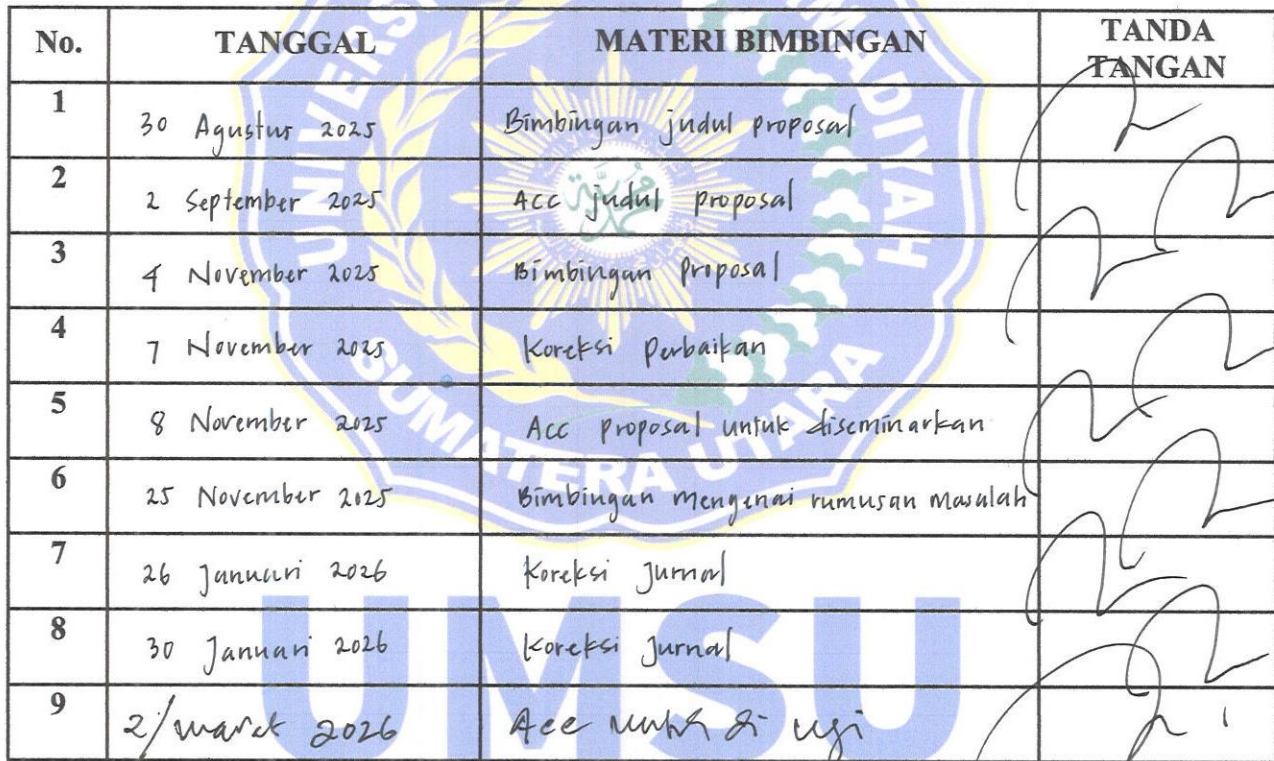 No. TANGGAL MATERI BIMBINGAN TANDA TANGAN
1 30 Agustus 2025 Bimbingan judul proposal
2 2 September 2025 Acc judul proposal
3 4 November 2025 Bimbingan proposal
4 7 November 2025 Koreksi Perbaikan
5 8 November 2025 Acc proposal untuk diseminarkan
6 25 November 2025 Bimbingan mengenai rumusan masalah
7 26 Januari 2026 Koreksi Jurnal
8 30 Januari 2026 Koreksi Jurnal
9 2/maret 2026 Acc untuk di uji
SUMATERA UTARA
UMSU